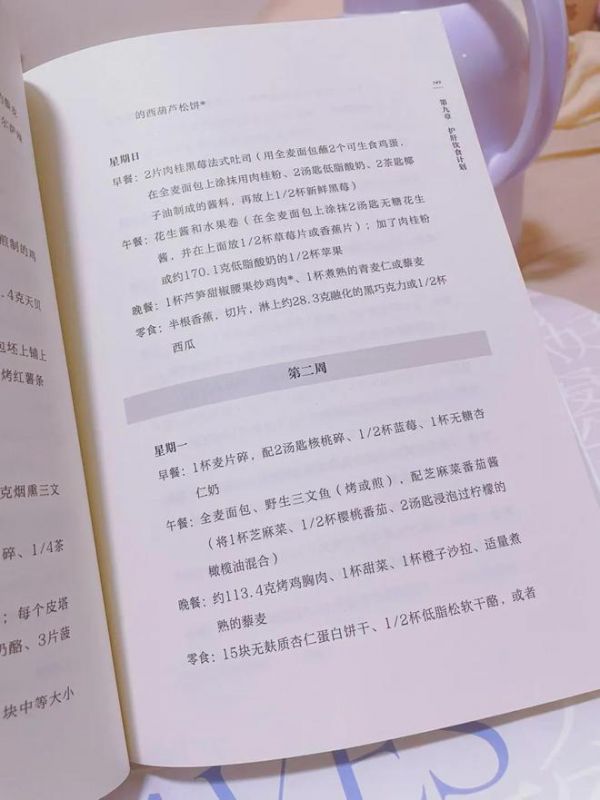 煎制的鸡
.4克天贝
包坯上铺上
烤红薯条
克烟熏三文
碎、1/4茶
；每个皮塔
奶酪、3片菠
块中等大小
第九章 护肝饮食计划
的西葫芦松饼*
星期日
早餐：2片肉桂黑莓法式吐司（用全麦面包蘸2个可生食鸡蛋，
在全麦面包上涂抹用肉桂粉、2汤匙低脂酸奶、2茶匙椰
子油制成的酱料，再放上1/2杯新鲜黑莓）
午餐：花生酱和水果卷（在全麦面包上涂抹2汤匙无糖花生
酱，并在上面放1/2杯草莓片或香蕉片）；加了肉桂粉
或约170.1克低脂酸奶的1/2杯苹果
晚餐：1杯芦笋甜椒腰果炒鸡肉*、1杯煮熟的青麦仁或藜麦
零食：半根香蕉，切片，淋上约28.3克融化的黑巧克力或1/2杯
西瓜
第二周
星期一
早餐：1杯麦片碎，配2汤匙核桃碎、1/2杯蓝莓、1杯无糖杏
仁奶
午餐：全麦面包、野生三文鱼（烤或煎），配芝麻菜番茄酱
（将1杯芝麻菜、1/2杯樱桃番茄、2汤匙浸泡过柠檬的
橄榄油混合）
晚餐：约113.4克烤鸡胸肉、1杯甜菜、1杯橙子沙拉、适量煮
熟的藜麦
零食：15块无麸质杏仁蛋白饼干、1/2杯低脂松软干酪，或者